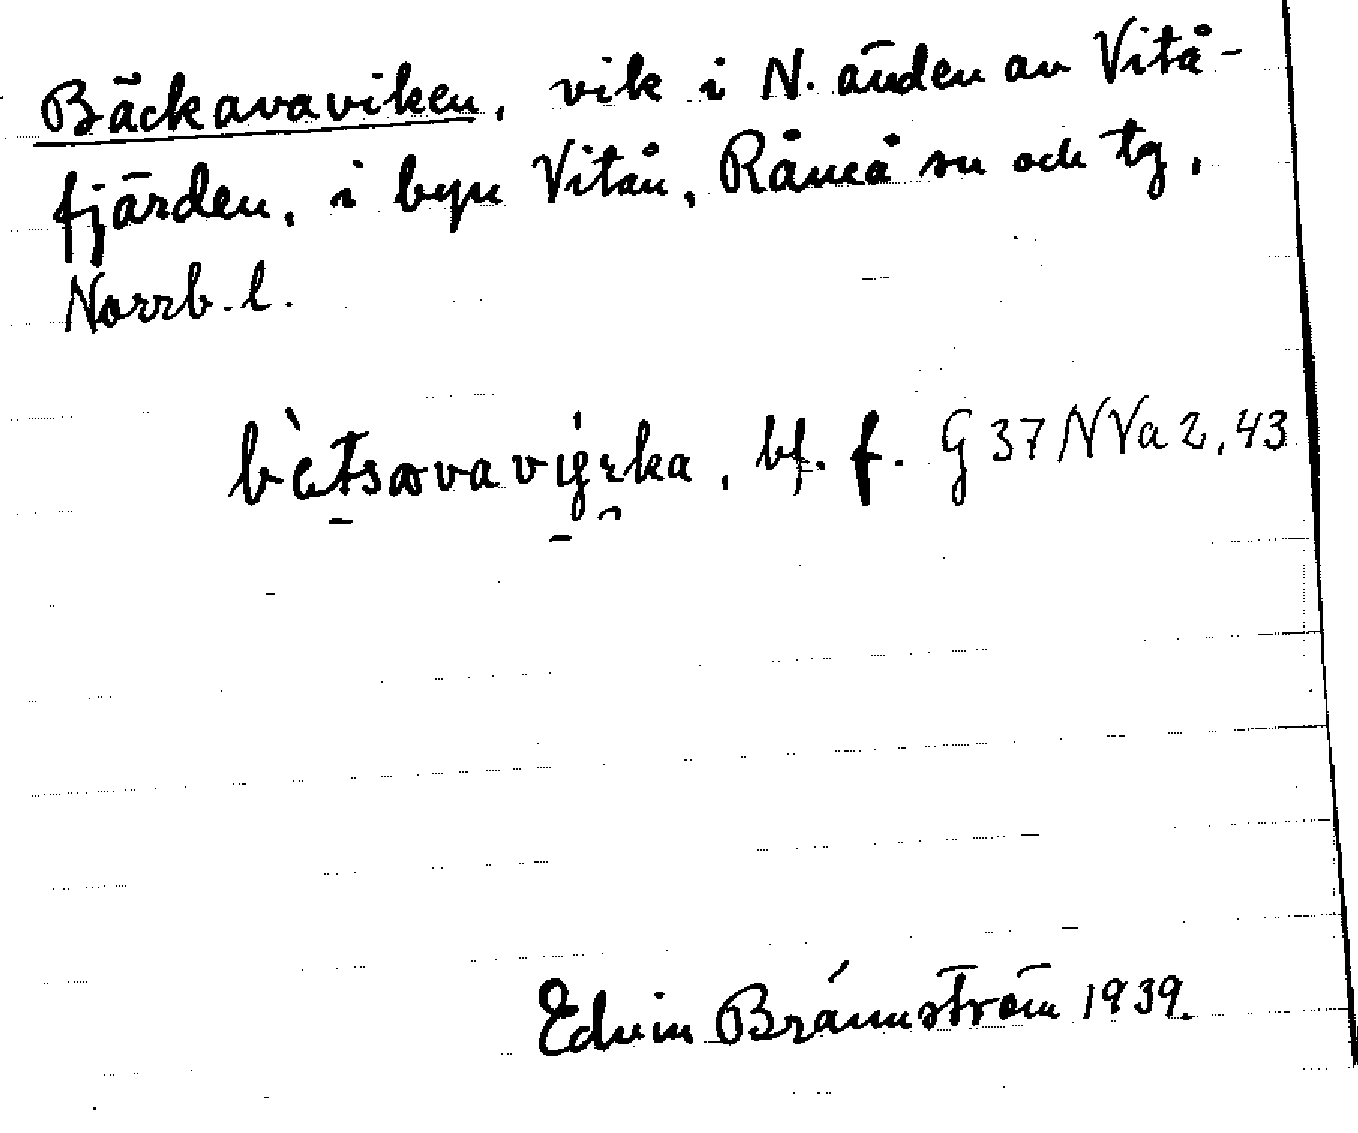 Bäckavaviken, vik i N. änden av Vitå-
fjärden, i byn Vitån, Råneå sn och tg,
Norrb. l.
bf. f. G 37 NVa 2, 43
Edvin Brännström 1939.